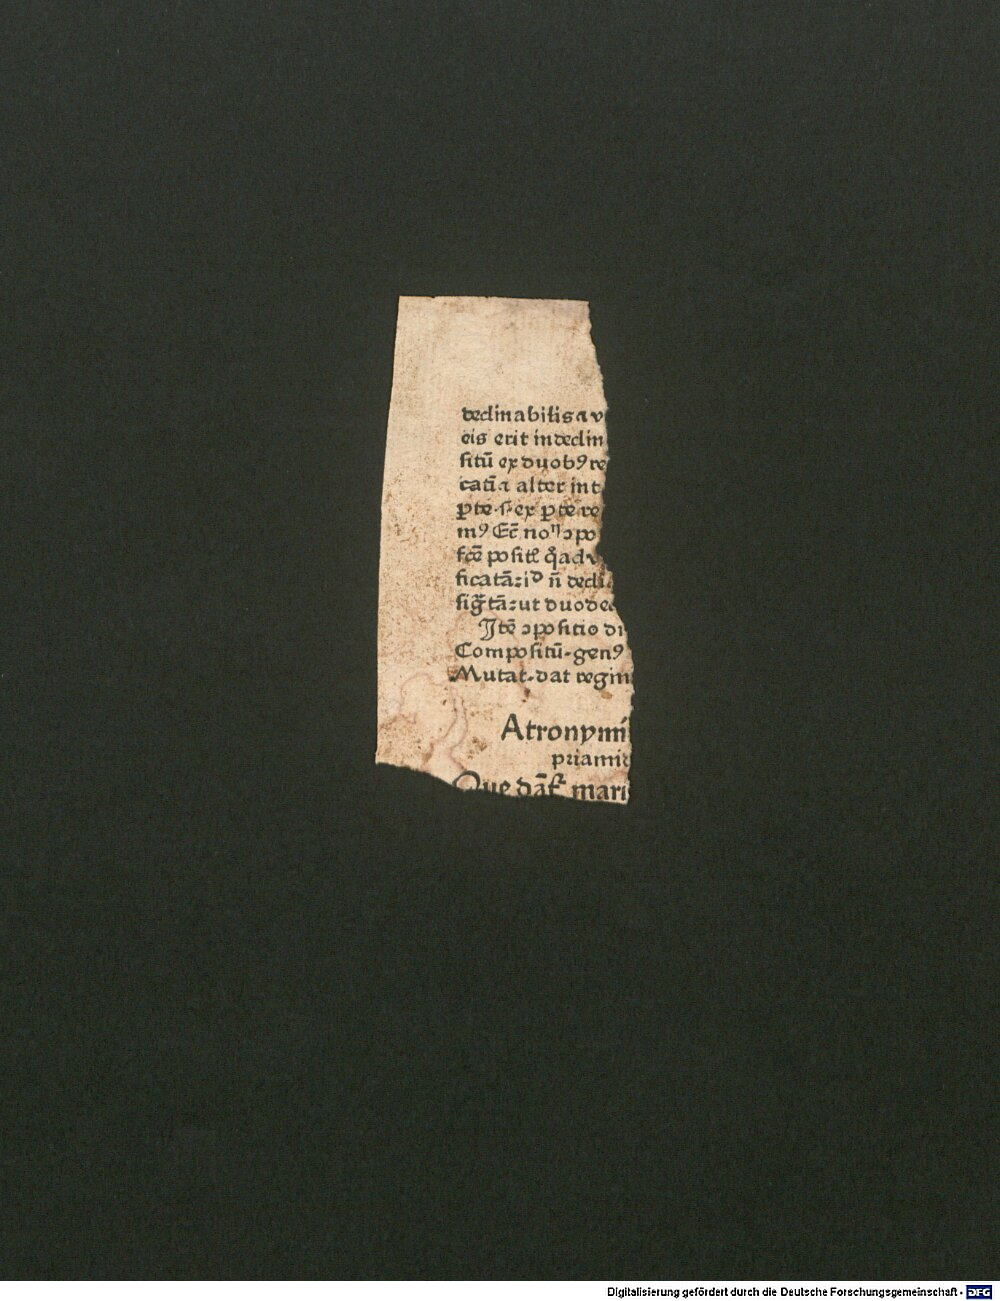 declinabilis ⁊ v
cis erit indeclin
sitū ex duobꝰ re
catū ⁊ alter int
ꝑte ex ꝑte re
mꝰ Ec̄ noⁿ ↄpo
ficatā: n̄ decli
sig̃tā: ut duode
Itē ↄpositio di
Compositū-genꝰ
Mutat-dat regin
Atronymi
priamid
Que mari
Digitalisierung gefördert durch die Deutsche Forschungsgemeinschaft - DFG